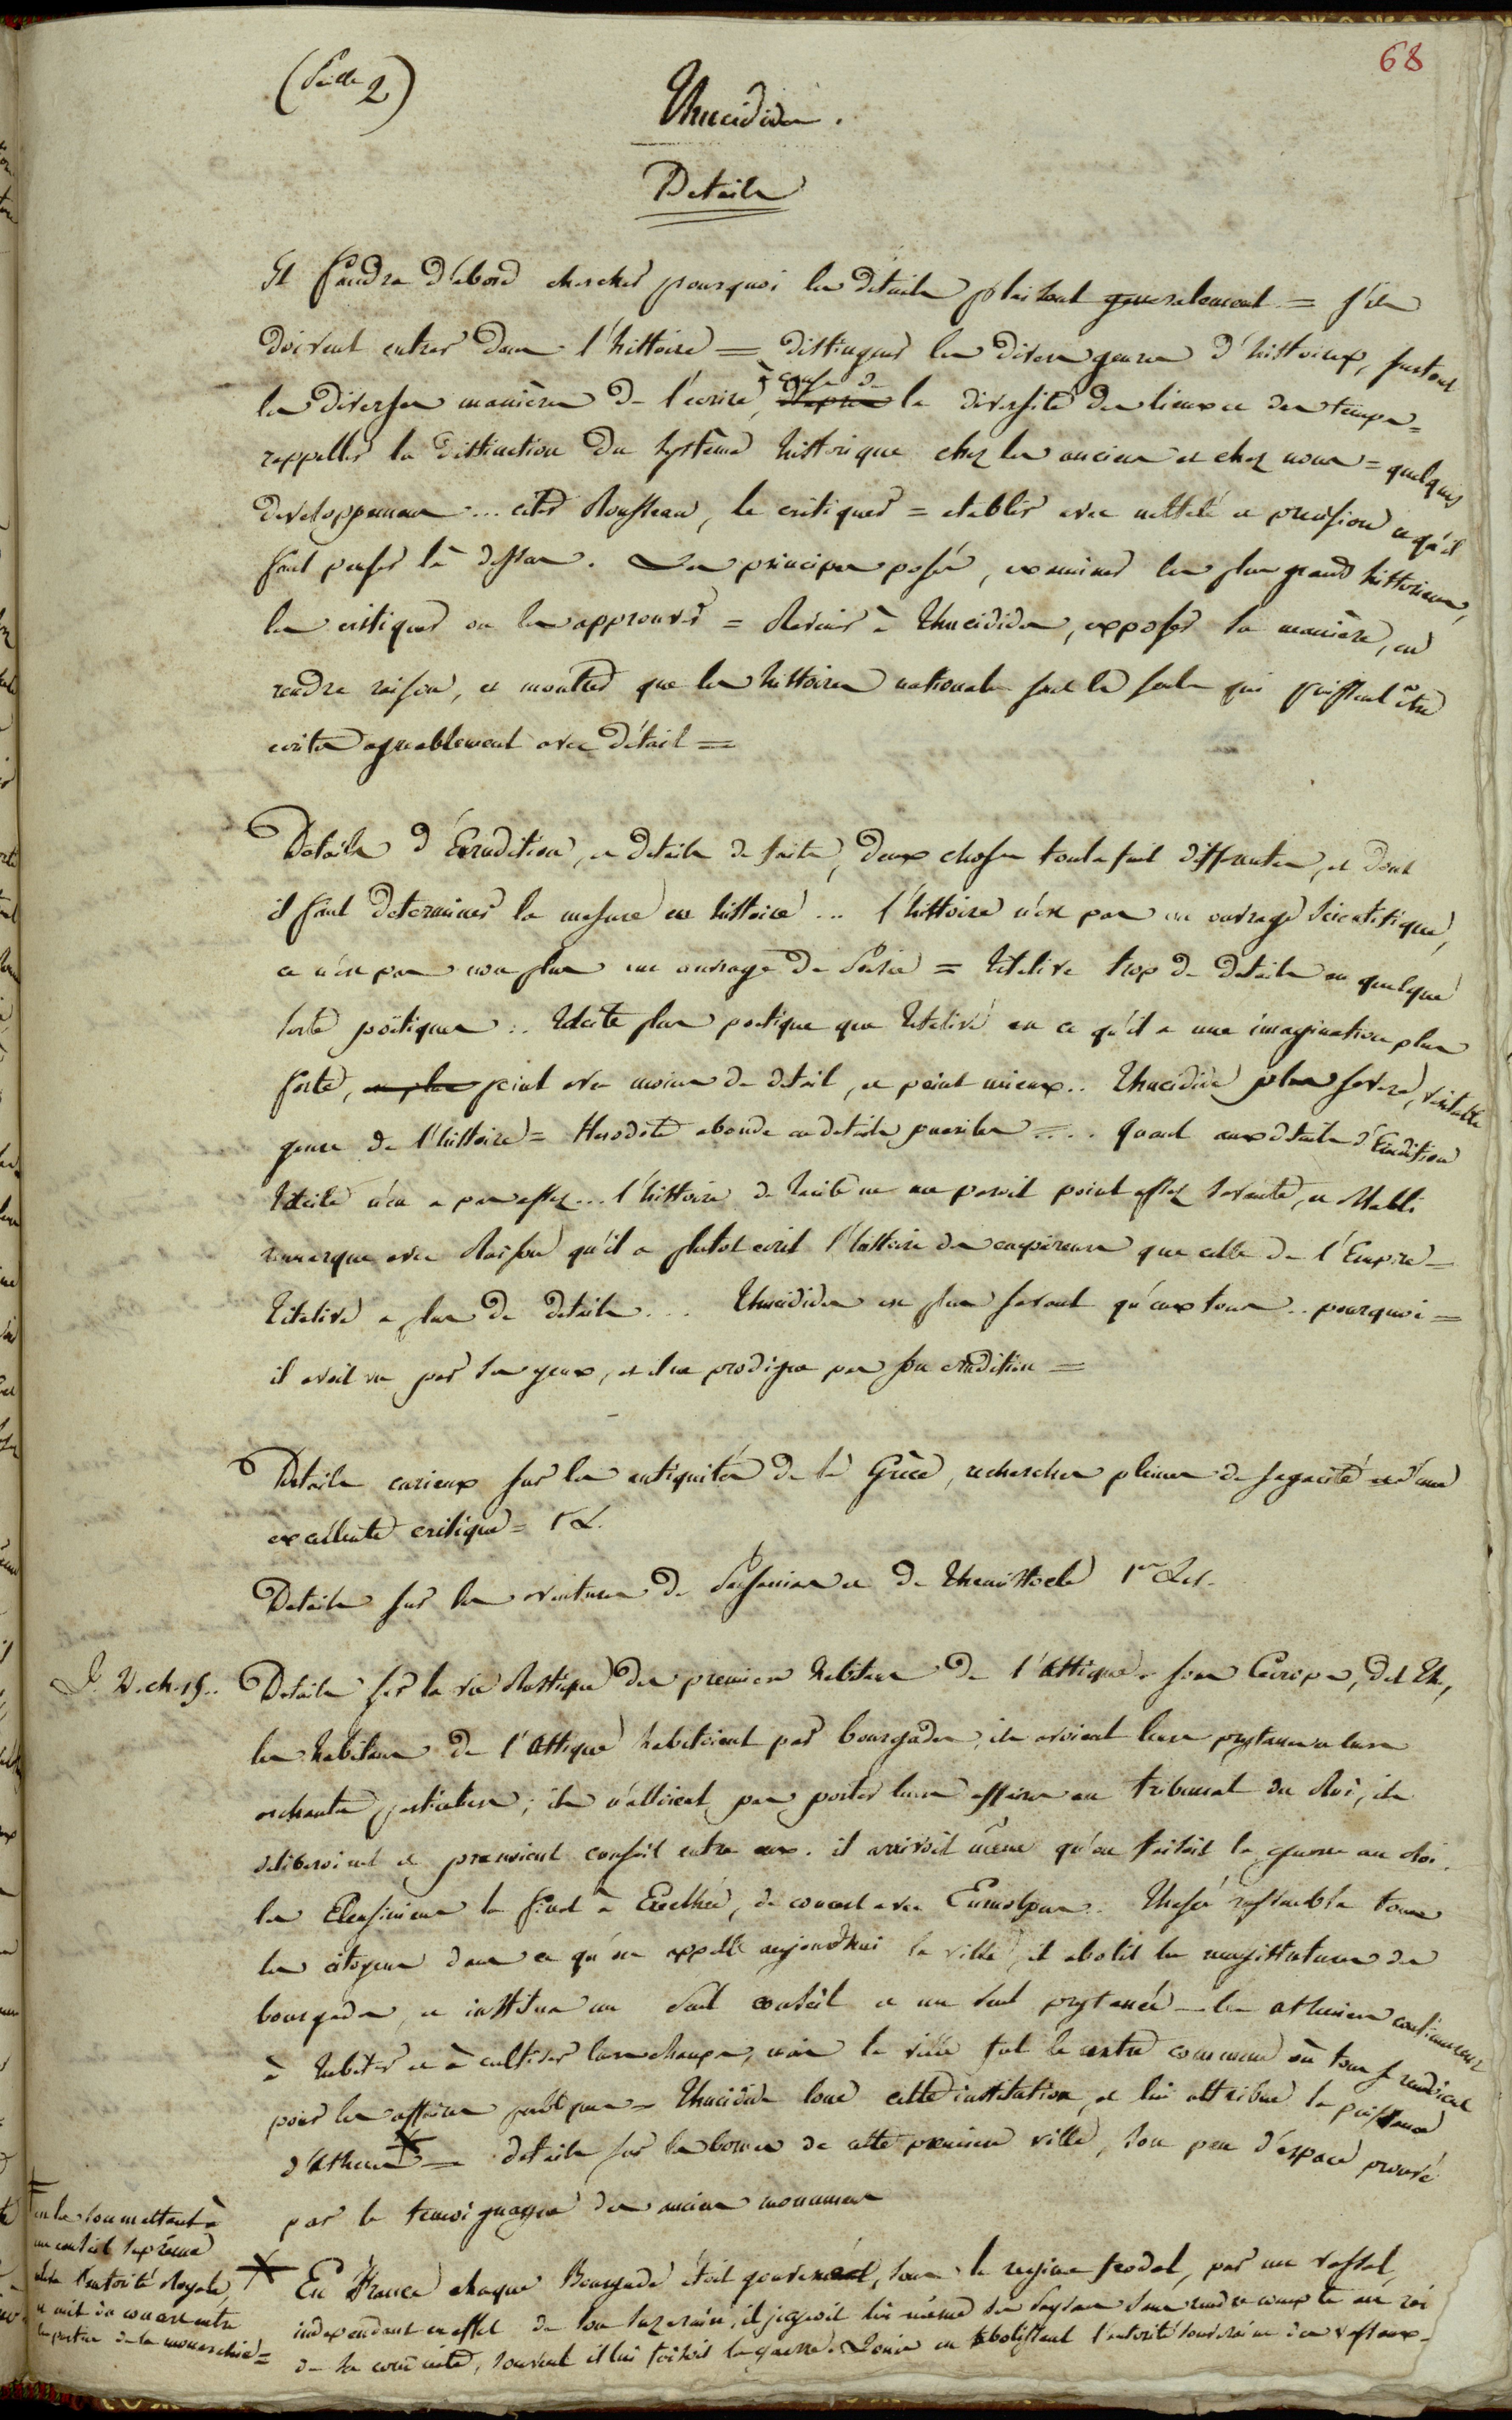 68
(Suite 2)
Thucidides.
Details
Il faudra d'abord chercher pourquoi les détails plaisent generalement = s'ils
doivent entrer dans l'histoire = distinguer les divers genres d'histoires, surtout
les diverses manières de l'écrire, à cause de la diversité des lieux et des temps =
rappeller la distinction du système historique chez les anciens et chez nous = quelques
developpemens ... citer Rousseau, le critiquer = etablir avec netteté et precision ce qu'il
faut penser là dessus. Les principes posés, examiner les plus grands historiens,
les critiquer ou les approuver = Revenir à Thucidides, exposer sa manière, en
rendre raison, et montrer que les histoires nationales sont les seules qui puissent être
ecrites agreablement avec détail =
Details d'Érudition, et details de faits, deux choses tout a fait differentes, et dont
il faut determiner la mesure en histoire ... l'histoire n'est pas un ouvrage scientifique,
ce n'est pas non plus un ouvrage de Poésie = Titelive trop de details en quelque
sorte poëtiques .. Tacite plus poetique que Titelive en ce qu'il a une imagination plus
forte, peint avec moins de detail, et peint mieux .. Thucidide plus severe, veritable
genre de l'histoire = Herodote abonde en details pueriles = ... Quant aux details d'Erudition
Tacite n'en a pas assez ... l'histoire de Tacite ne me paroit point assez savante, et Mabli
remarque avec Raison qu'il a plutot ecrit l'histoire des empereurs que celle de l'Empire =
Titelive a plus de details ... Thucidides est plus savant qu'eux tous .. pourquoi =
il avoit vu par ses yeux, et il ne prodigue pas son erudition =
Details curieux sur les antiquités de la Grèce, recherches pleines de sagacité et d'une
excellente critique = 1 L.
Details sur les aventures de Pausanias et de Themistocle 1er L.
L. 2. ch. 15. Details sur la vie Rustique des premiers habitans de l'Attique. sous Cecrops, dit Th,
les habitans de l'Attique habitoient par bourgades, ils avoient leurs prytanes et leurs
archontes particuliers; ils n'alloient pas porter leurs affaires au tribunal du Roi, ils
deliberoient et prenoient conseil entre eux. il arrivoit même qu'on faisoit la guerre au Roi.
les Eleusiniens la firent à Erecthée, de concert avec Eumolpus. Thesée rassembla tous
les citoyens dans ce qu'on appelle aujourd'hui la ville, il abolit les magistratures des
bourgades, et institua un seul conseil et un seul prytanée — les atheniens continuerent
à habiter et à cultiver leurs champs, mais la ville fut le centre commun où tous se rendoient
pour les affaires publiques = Thucidide loue cette institution, et lui attribue la puissance
d'Athenes = details sur les bornes de cette premiere ville, son peu d'espace prouvé
par le temoignage des anciens monumens
En France chaque Bourgade étoit gouvernée, sous le regime feodal, par un vassal,
independant en effet de son suzerain, il jugeoit lui même ses Paysans sans rendre compte au roi
de sa conduite, souvent il lui faisoit la guerre. Louis en abolissant l'autorité souveraine des vassaux
en les soumettant à
un conseil suprême
de l'autorité Royale,
a mit du concert entre
les parties de la monarchie =